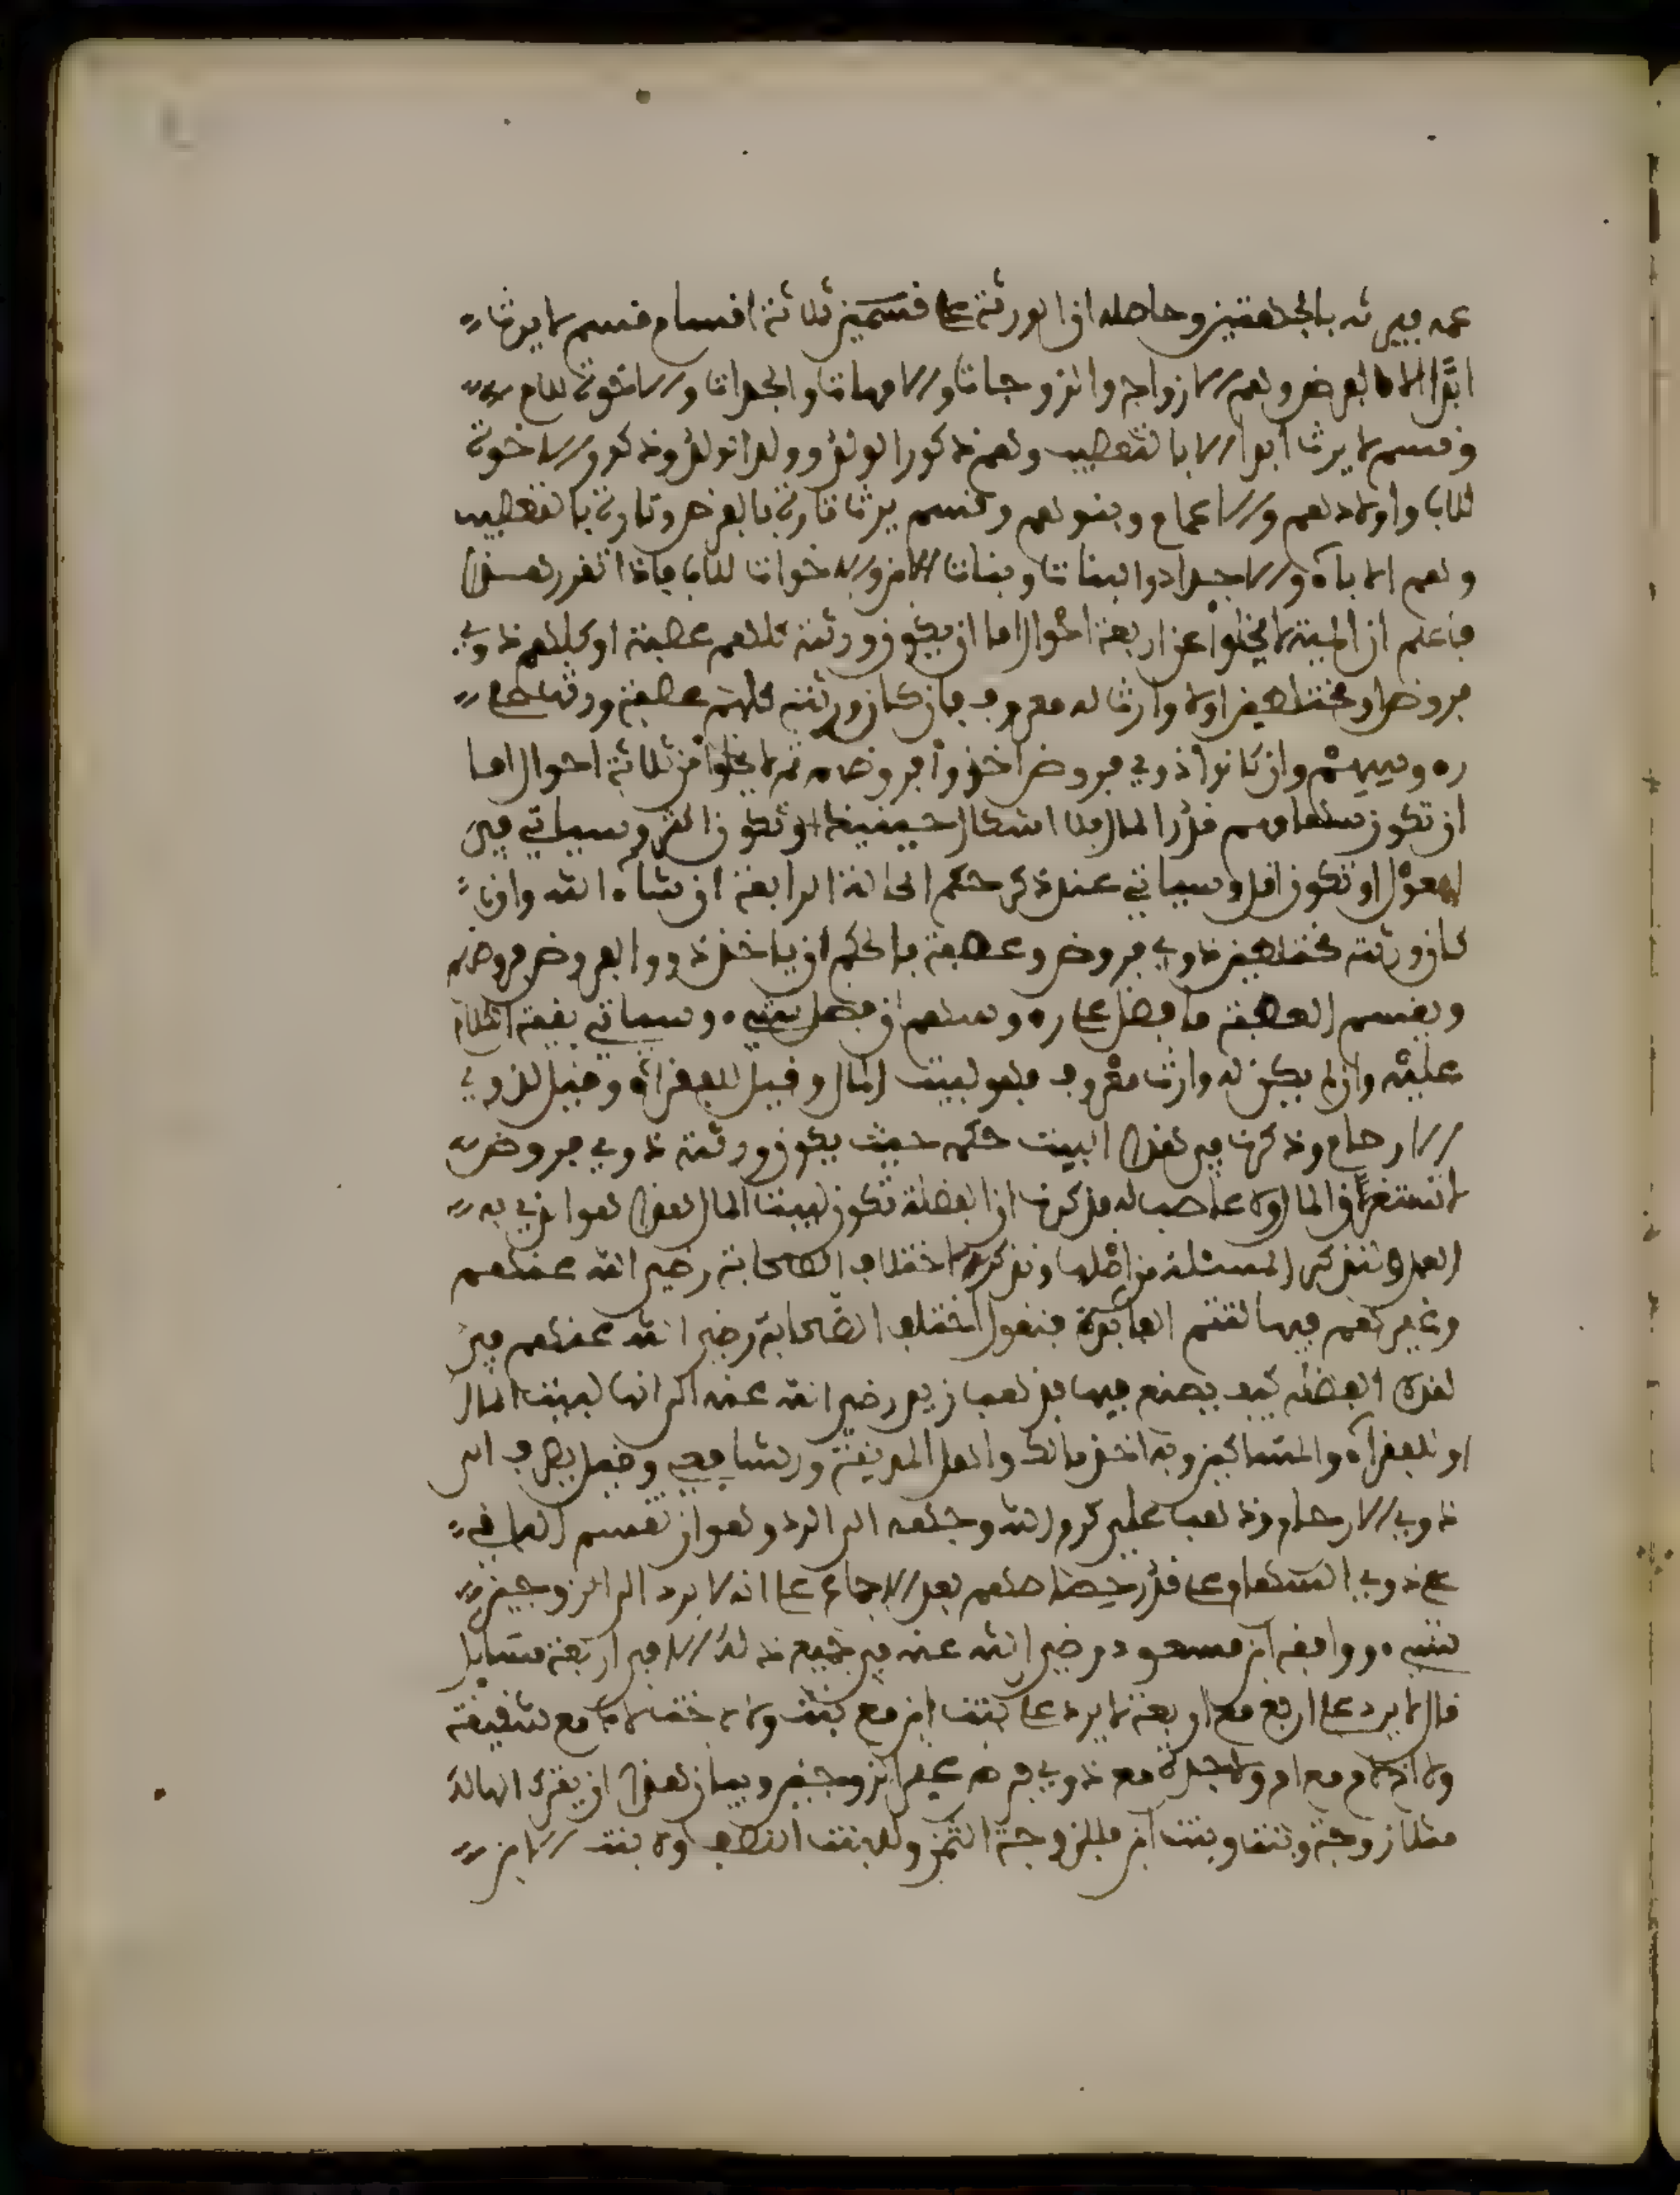 عمه فيرثه بالجهتين وحاصله ان الورثة على قسمين ثلاثة اقسام قسم لا يرث
ابدا الا بالفرض وهم الازواج والزوجات والامهات والجدات والاخوة للام
وقسم لا يرث ابدا الا بالتعصيب وهم ذكور الولد وولد الولد وذكور الاخوة
للاب واولادهم والاعمام وبنوهم وقسم يرث تارة بالفرض وتارة بالتعصيب
وهم الاباء والاجداد والبنات وبنات الابن والاخوات للاب فاذا تقرر هذا
فاعلم ان الميت لا يخلوا عن اربعة احوال اما ان يكون ورثته كلهم عصبة او كلهم ذوي
فروض او مختلطين اولا وارث له معروف فان كان ورثته كلهم عصبة ورثه على
رءوسهم وان كانوا ذوي فروض اخذوا فروضهم ثم لا يخلوا من ثلاثة احوال اما
ان تكون سهامهم قدر المال فلا اشكال حينئذ او تكون اكثر وسياتي في
العول او تكون اقل وسياتي عند ذكر حكم الحالة الرابعة ان شاء الله وان
كان ورثته مختلطين ذوي فروض وعصبة فالحكم ان ياخذ ذووا الفروض فروضهم
ويقسم العصبة ما فضل على رءوسهم ان فضل شيء وسياتي بقية الكلام
عليه وان لم يكن له وارث معروف فهو لبيت المال وقيل للفقراء وقيل لذوي
الارحام وذكرنا في هذا البيت حكمه حيث يكون ورثته ذوي فروض
لا تستغرق المال ولا عاصب له فذكرنا ان الفضلة تكون لبيت المال هذا هو الذي به
العمل ولنذكر المسئلة من اصلها ونذكر اختلاف الصحابة رضي الله عنهم
وغيرهم فيها لتتم الفائدة فنقول اختلف الصحابة رضي الله عنهم في
هذه الفضلة كيف يصنع فيها فذهب زيد رضي الله عنه الى انها لبيت المال
او للفقراء والمساكين وبه اخذ مالك واهل المدينة والشافعي وقيل يصرف الى
ذوي الارحام وذهب علي كرم الله وجهه الى الرد وهو ان تقسم الباقي
على ذوي السهام على قدر حصاصهم بعد الاجماع على انه لا يرد الى الزوجين
شيء ووافقه ابن مسعود رضي الله عنه في جميع ذلك الا في اربعة مسايل
قال لا يرد على اربع مع اربعة لا يرد على بنت ابن مع بنت ولا لاخت لاب مع شقيقة
ولا اخ لام مع ام ولا جدة مع ذوي فرض غير الزوجين وبيان هذا ان يترك الهالك
مثلا زوجة وبنت وبنت ابن فللزوجة الثمن وللبنت النصف ولا بنت الابن